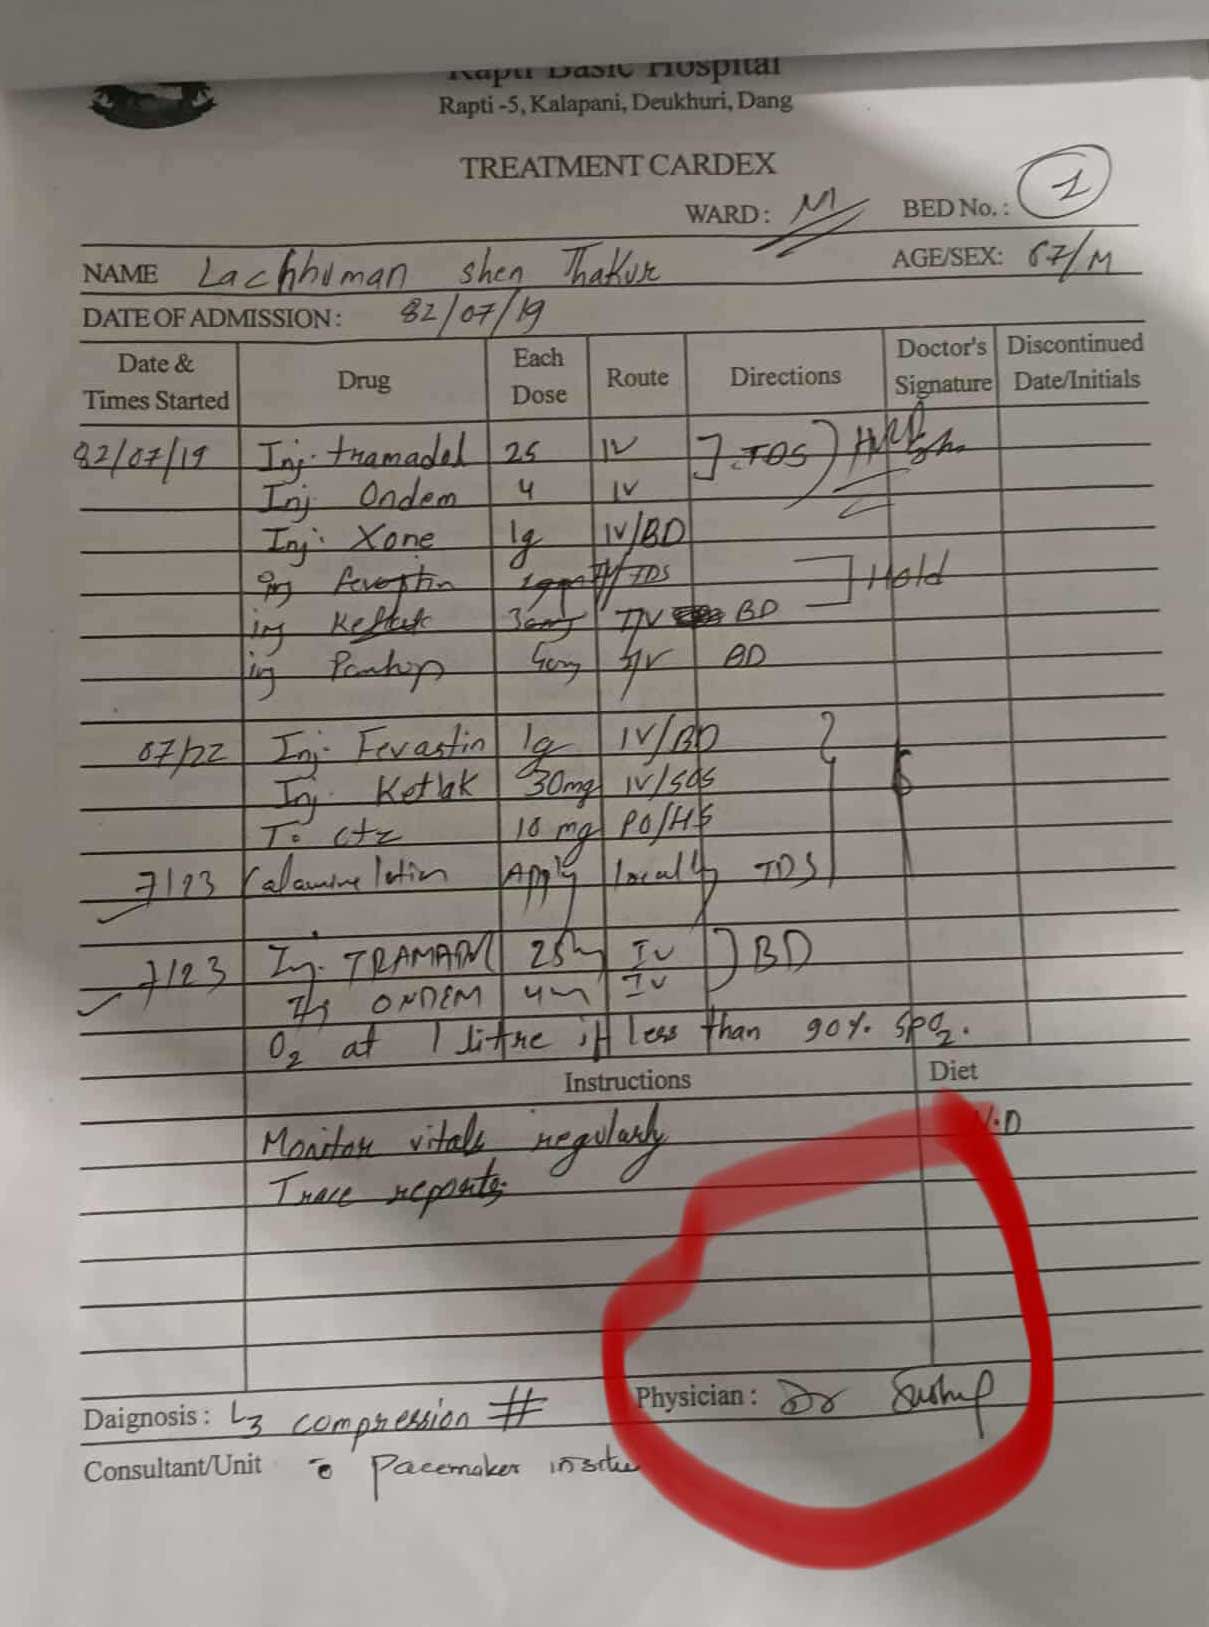 Rapti Basic Hospital
Rapti -5, Kalapani, Deukhuri, Dang
TREATMENT CARDEX
WARD: M BED No.: 1
NAME Lachhuman shen Thakur AGE/SEX: 67/M
DATE OF ADMISSION: 82/07/19
Date & Times Started Drug Each Dose Route Directions Doctor's Signature Discontinued Date/Initials
82/07/19 Inj. tramadol 25 IV TDS
Inj Ondem 4 IV
Inj. Xone 1g IV/BD
inj TDS Hold
inj IV BD
inj IV BD
07/22 Inj. Fevastin 1g IV/BD
Inj. Ketlak 30mg IV/SOS
T. ctz 10 mg PO/HS
7/23 Calamine lotion Apply locally TDS
7/23 Inj. TRAMADOL 25m IV BD
Inj ONDEM 4m IV
O2 at 1 litre if less than 90% SPO2.
Instructions Diet
Monitor vitals regularly N.D
Trace reports
Daignosis: L3 compression # Physician: Dr
Consultant/Unit c Pacemaker insitu